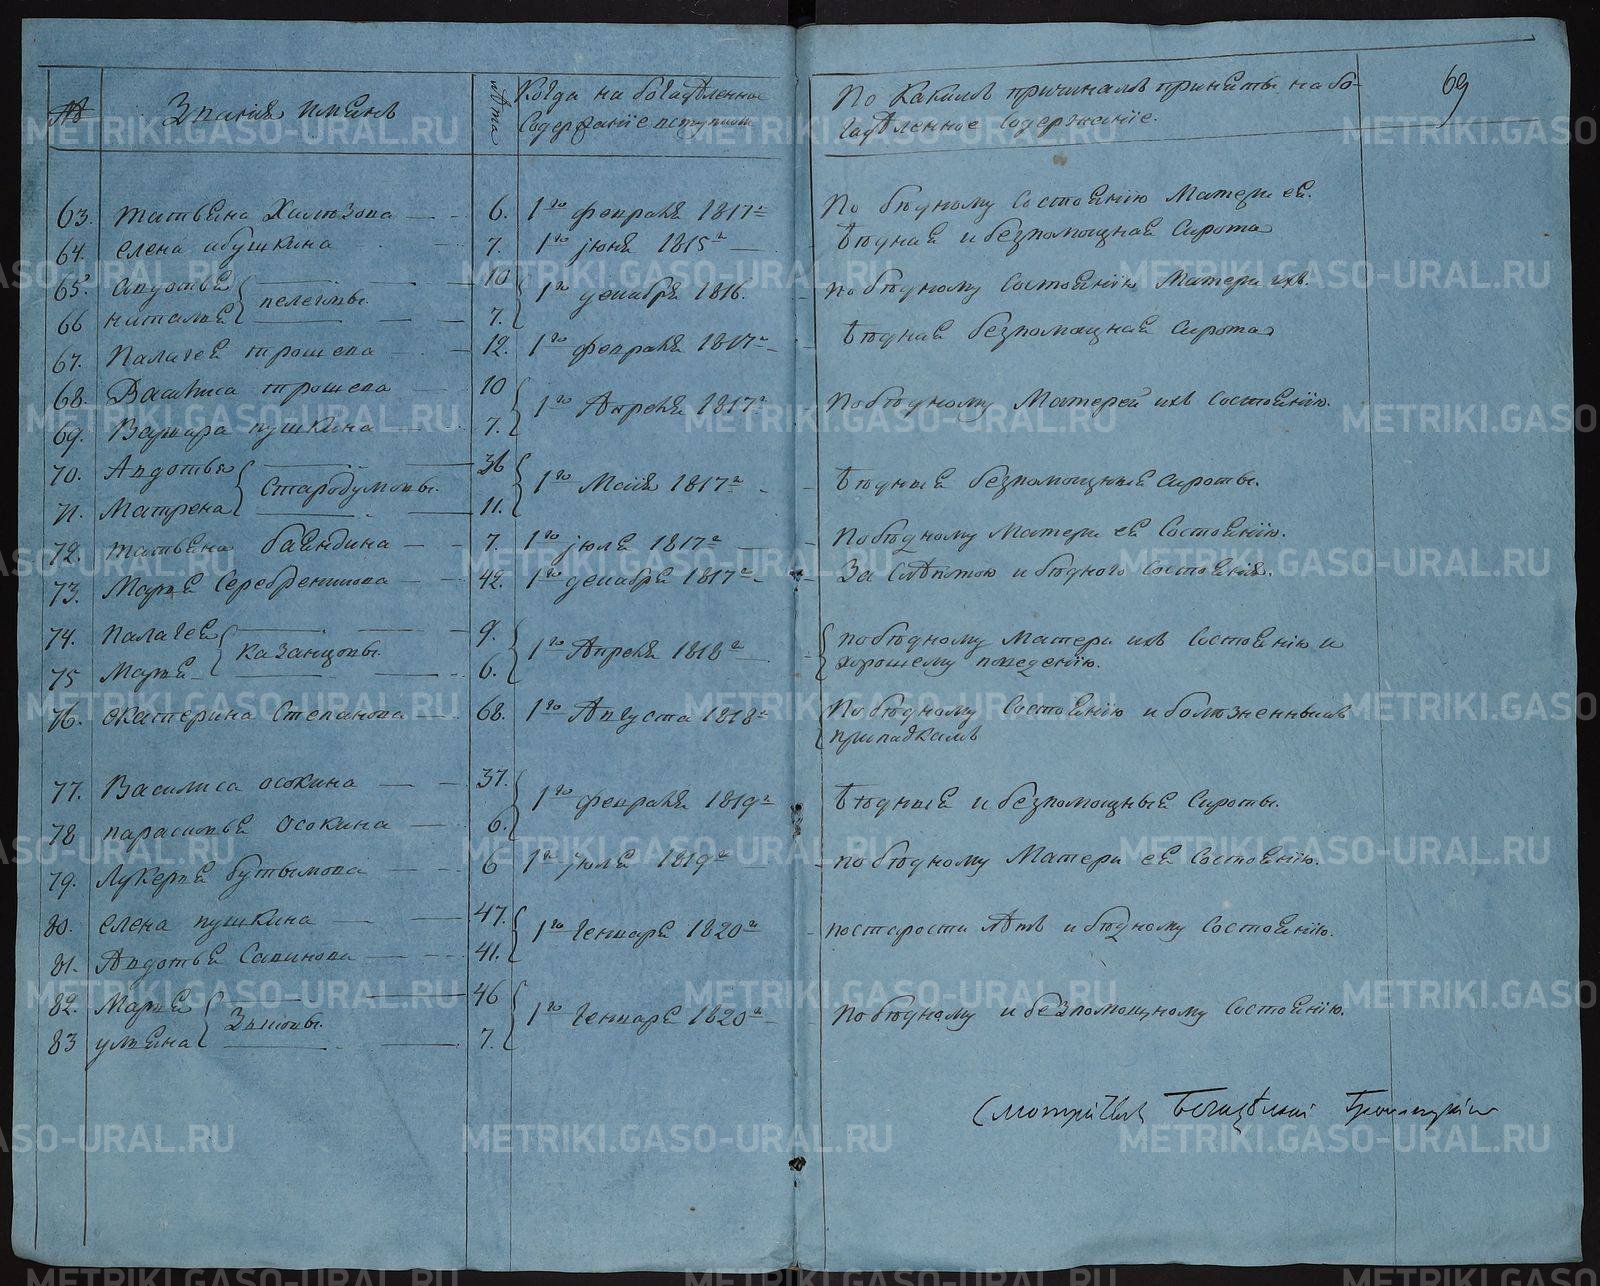 69
№ Званiя имянъ лѣта Когда на богадѣленное По какимъ причинамъ приняты на бо-
содержанiе поступили гадѣленное содержанiе.
63. татьяна 6. 1го февраля 1817г По бѣдному состоянiю Матери ея.
64. елена 7. 1го iюня 1815г бѣдная и безпомощная Сирота
65. авдотья 10 1го декабря 1816. по бѣдному состоянiю Матери ихъ.
66 наталья 7.
67. Палагея трошева 12. 1го февраля 1817г бѣдная безпомощная Сирота
68. Василиса трошева 10 1го Апреля 1817г По бѣдному Матерей ихъ состоянiю.
69. Варвара пушкина 7.
70. Авдотья Стародумовы. 36 1го Маiя 1817г бѣдныя безпомощныя Сироты.
71. Матрена 11.
72. татьяна баяндина 7. 1го iюля 1817г По бѣдному Матери ея Состоянiю.
73. Марья Серебреникова 42. 1го декабря 1817г За слѣпотою и бѣдного состоянiя.
74. палагея Казанцовы. 9. 1го Апреля 1818г по бѣдному Матери ихъ состоянiю и
75 Марья 6. хорошему поведенiю.
76. екатерина Степанова 68. 1го Августа 1818г По бѣдному состоянiю и болѣзненнымъ
припадкамъ
77. Василиса осокина 37. 1го февраля 1819г бѣдныя и безпомощныя Сироты.
78 парасковья осокина 6.
79. Лукерья бутымова 6 1го iюля 1819г по бѣдному Матери ея Состоянiю.
80. елена пушкина 47. 1го Генваря 1820г по старости лѣтъ и бѣдному состоянiю.
81. Авдотья Савинова 41.
82. Марья Зыковы. 46 1го Генваря 1820г По бѣдному и безпомощному состоянiю.
83 ульяна 7.
Смотритель
METRIKI.GASO-URAL.RU